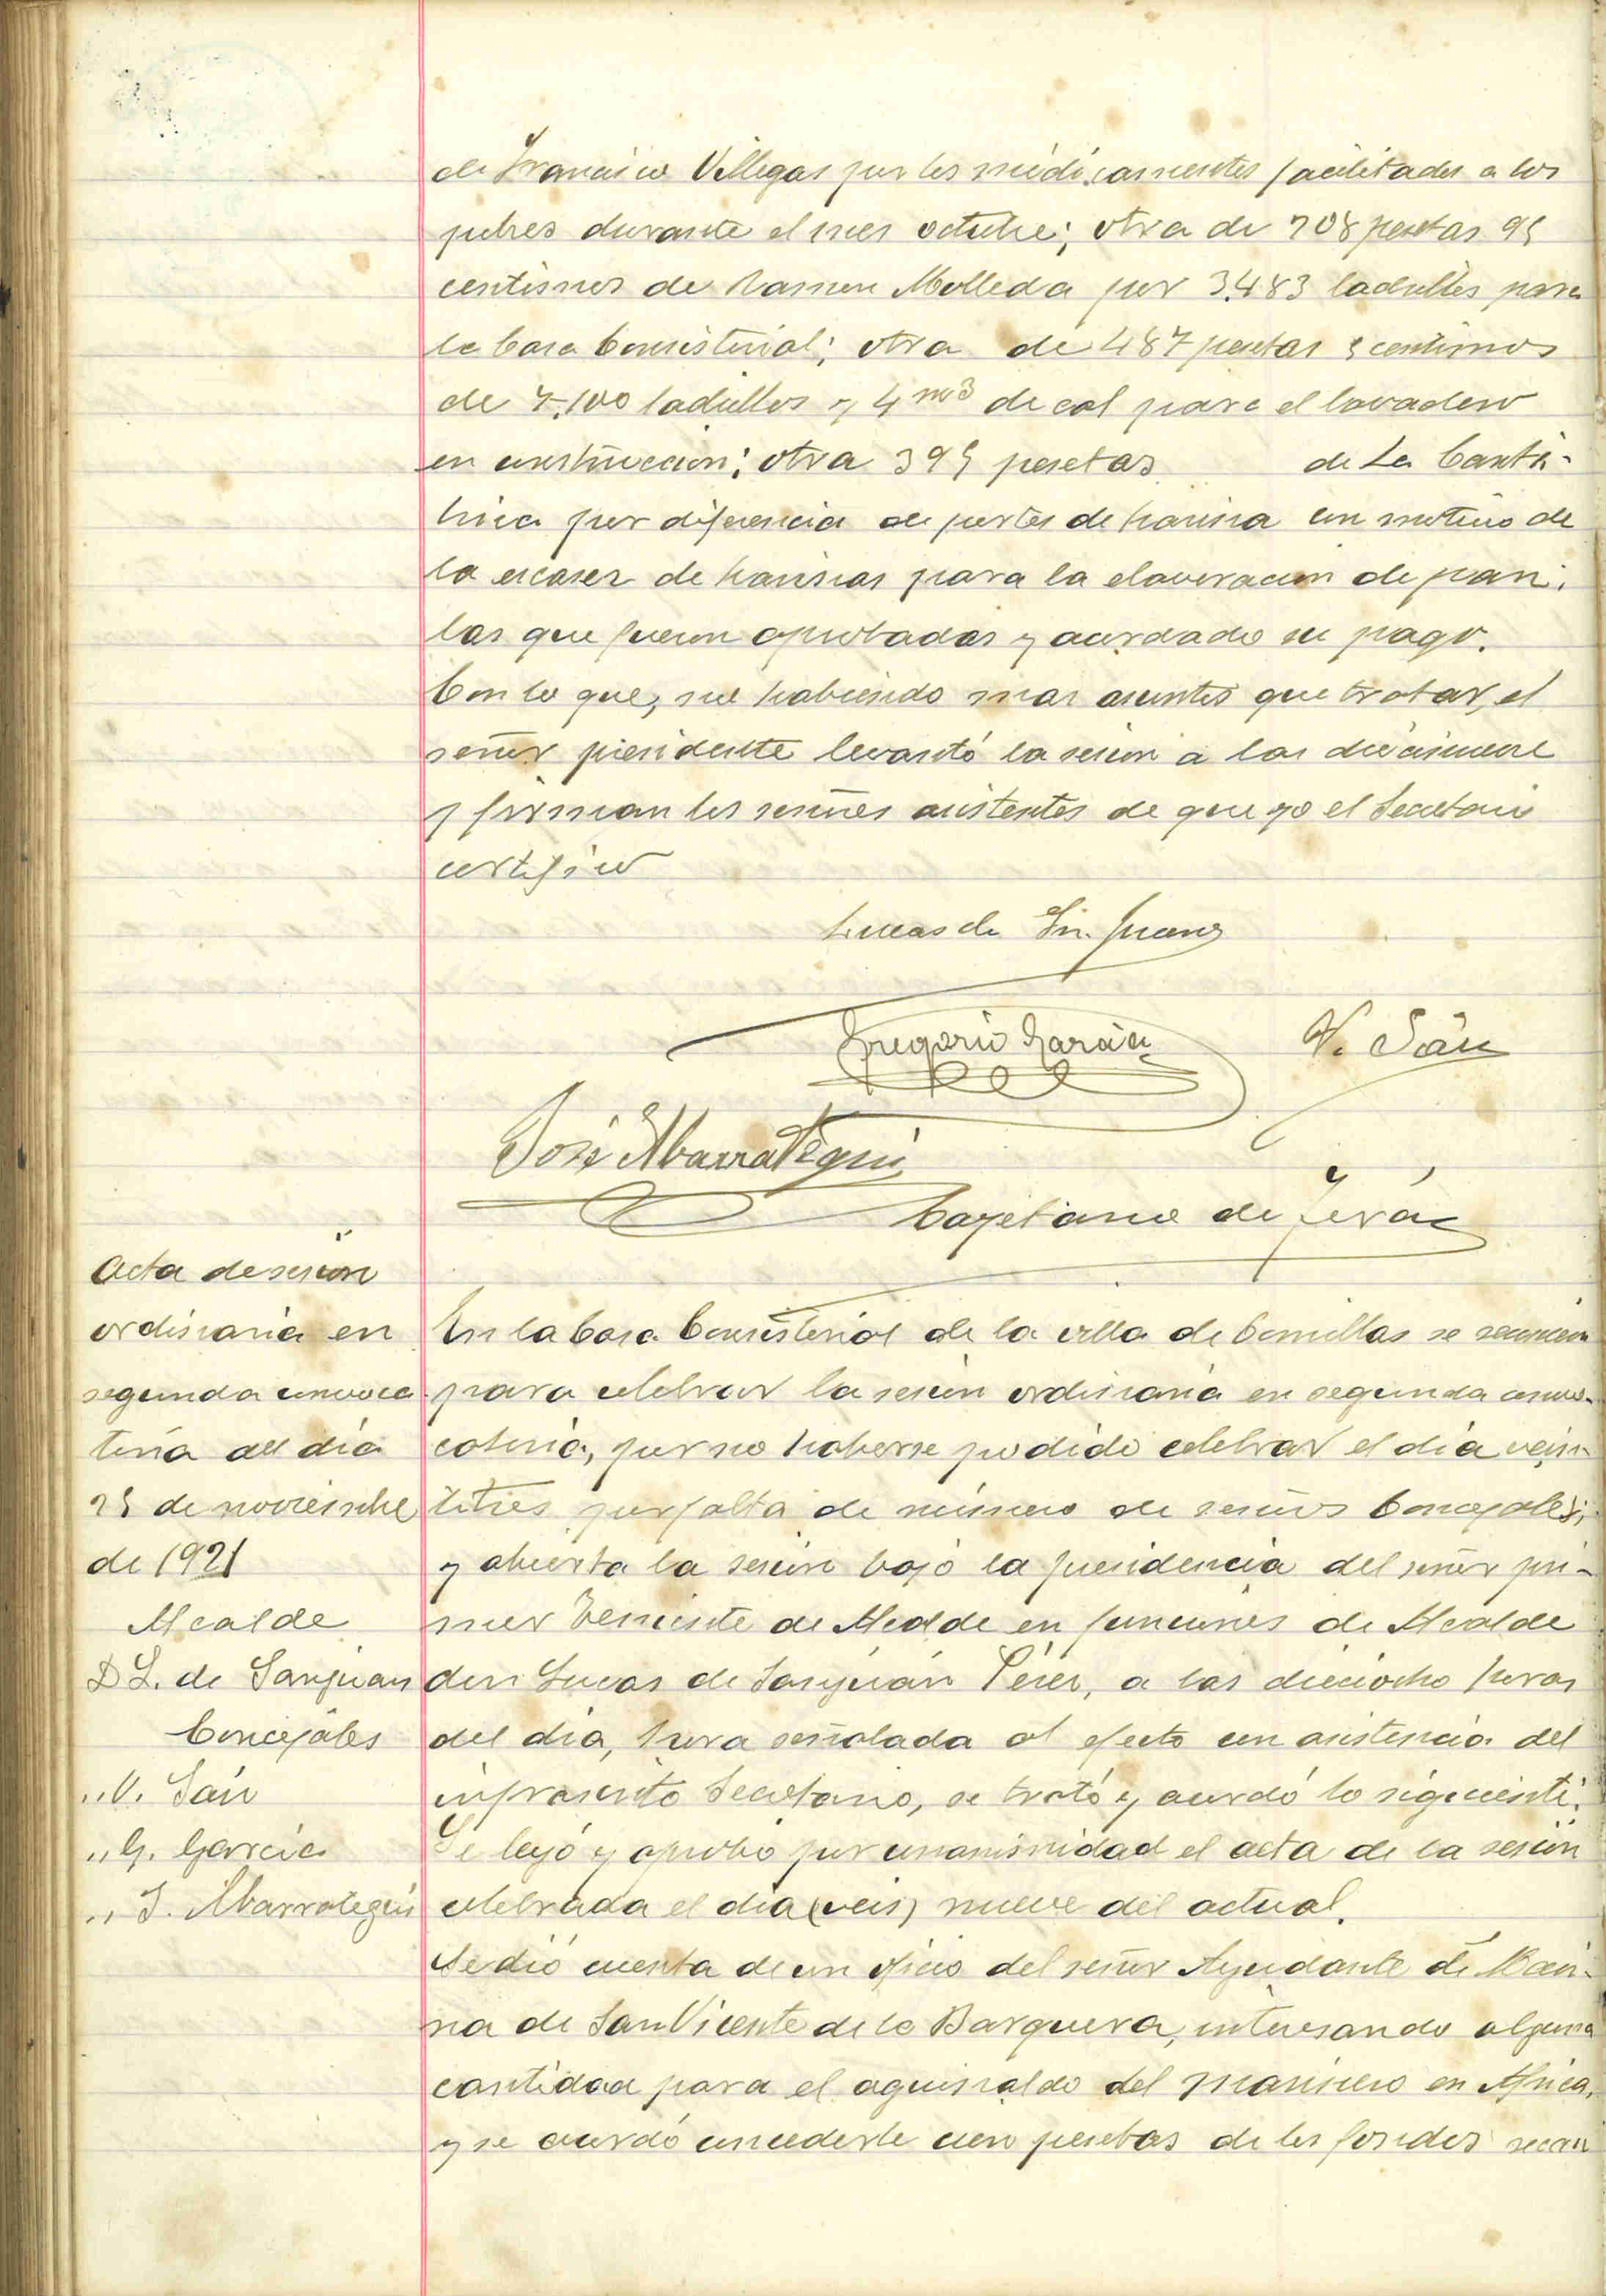 de Francisco Villegas por los medicamentos facilitados a los
pobres durante el mes octubre; otra de 708 pesetas 95
centimos de Ramon Molleda por 3.483 ladrillos para
la Casa Consistorial; otra de 487 pesetas centimos
de 7.100 ladrillos y 4 m3 de cal para el lavadero
en construccion; otra 395 pesetas de La Cantá-
brica por diferencia de portes de harina con motivo de
la escasez de harinas para la elaveracion de pan;
las que fueron aprobadas y acordado su pago.
Con lo que, no habiendo mas asuntos que tratar, el
señor presidente levantó la sesion a las diecinueve
y firman los señores asistentes de que yo el Secretario
certifico
Lucas de Sn. Juan
Gregorio García
V. Sáiz
José Abarrategui
Cayetano de Terán
Acta de sesión
ordinaria en
segunda convoca
toria del día
25 de noviembre
de 1921
Alcalde
D L. de Sanjuan
Concejales
,, V. Saiz
,, G. Garcia
,, J. Abarrategui
En la Casa Consistorial de la villa de Comillas se reunieron
para celebrar la sesion ordinaria en segunda convo-
catoria, por no haberse podido celebrar el día vein
titres por falta de número de señores Concejales;
y abierta la sesión bajo la presidencia del señor pri-
mer Teniente de Alcalde en funciones de Alcalde
don Lucas de Sanjuán Pérez, a las dieciocho horas
del dia, hora señalada al efecto con asistencia del
infrascrito Secretario, se trató y acordó lo siguiente:
Se leyó y aprobó por unanimidad el acta de la sesión
celebrada el dia (veis) nueve del actual.
Se dió cuenta de un oficio del señor Ayudante de Mari-
na de San Vicente de la Barquera, interesando alguna
cantidad para el aguinaldo del marinero en Africa,
y se acordó concederle cien pesetas de los fondos recau